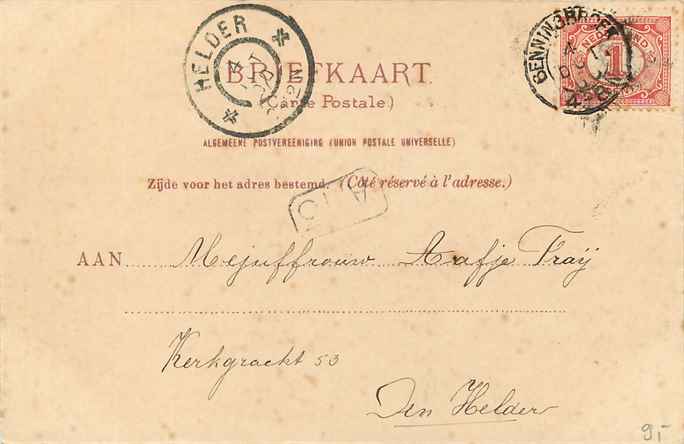 HELDER
BENNINGBROEK
NEDERLAND
1
BRIEFKAART
(Carte Postale.)
ALGEMEENE POSTVEREENIGING (UNION POSTALE UNIVERSELLE)
Zijde voor het adres bestemd. (Côté réservé à l'adresse.)
AAN Mejuffrouw Aafje Traÿ
Kerkgracht 53
Den Helder
9,-